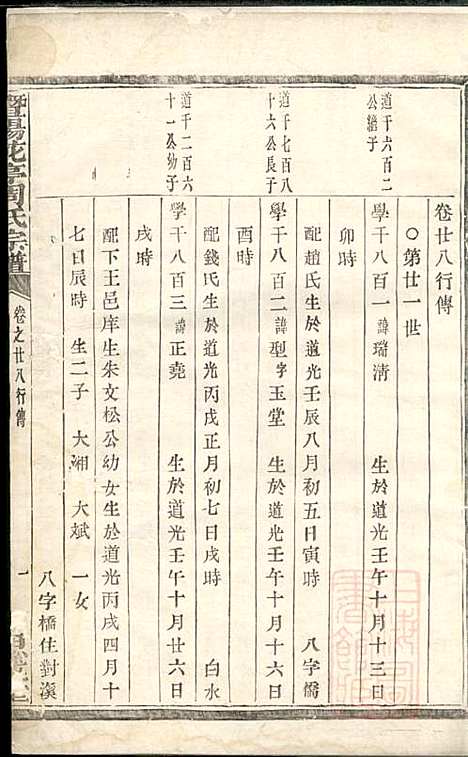 卷廿八行傳
○第廿一世
道千六百二
公瀹子
學千八百一 諱瑞淸 生於道光壬午十月十三日
卯時
配趙氏生於道光壬辰八月初五日寅時 八字僑
道千七百八
十六公長子
學千八百二 諱型字玉堂 生於道光壬午十月十六日
酉時
配錢氏生於道光丙戌正月初七日戌時 白水
道千二百六
十一公幼子
學千八百三 諱正堯 生於道光壬午十月廿六日
戌時
配下王邑庠生朱文松公幼女生於道光丙戌四月十
七日辰時 生二子 大湘 大斌 一女
八字橋住對溪
暨陽花亭周氏宗譜
卷之廿八行傳
一